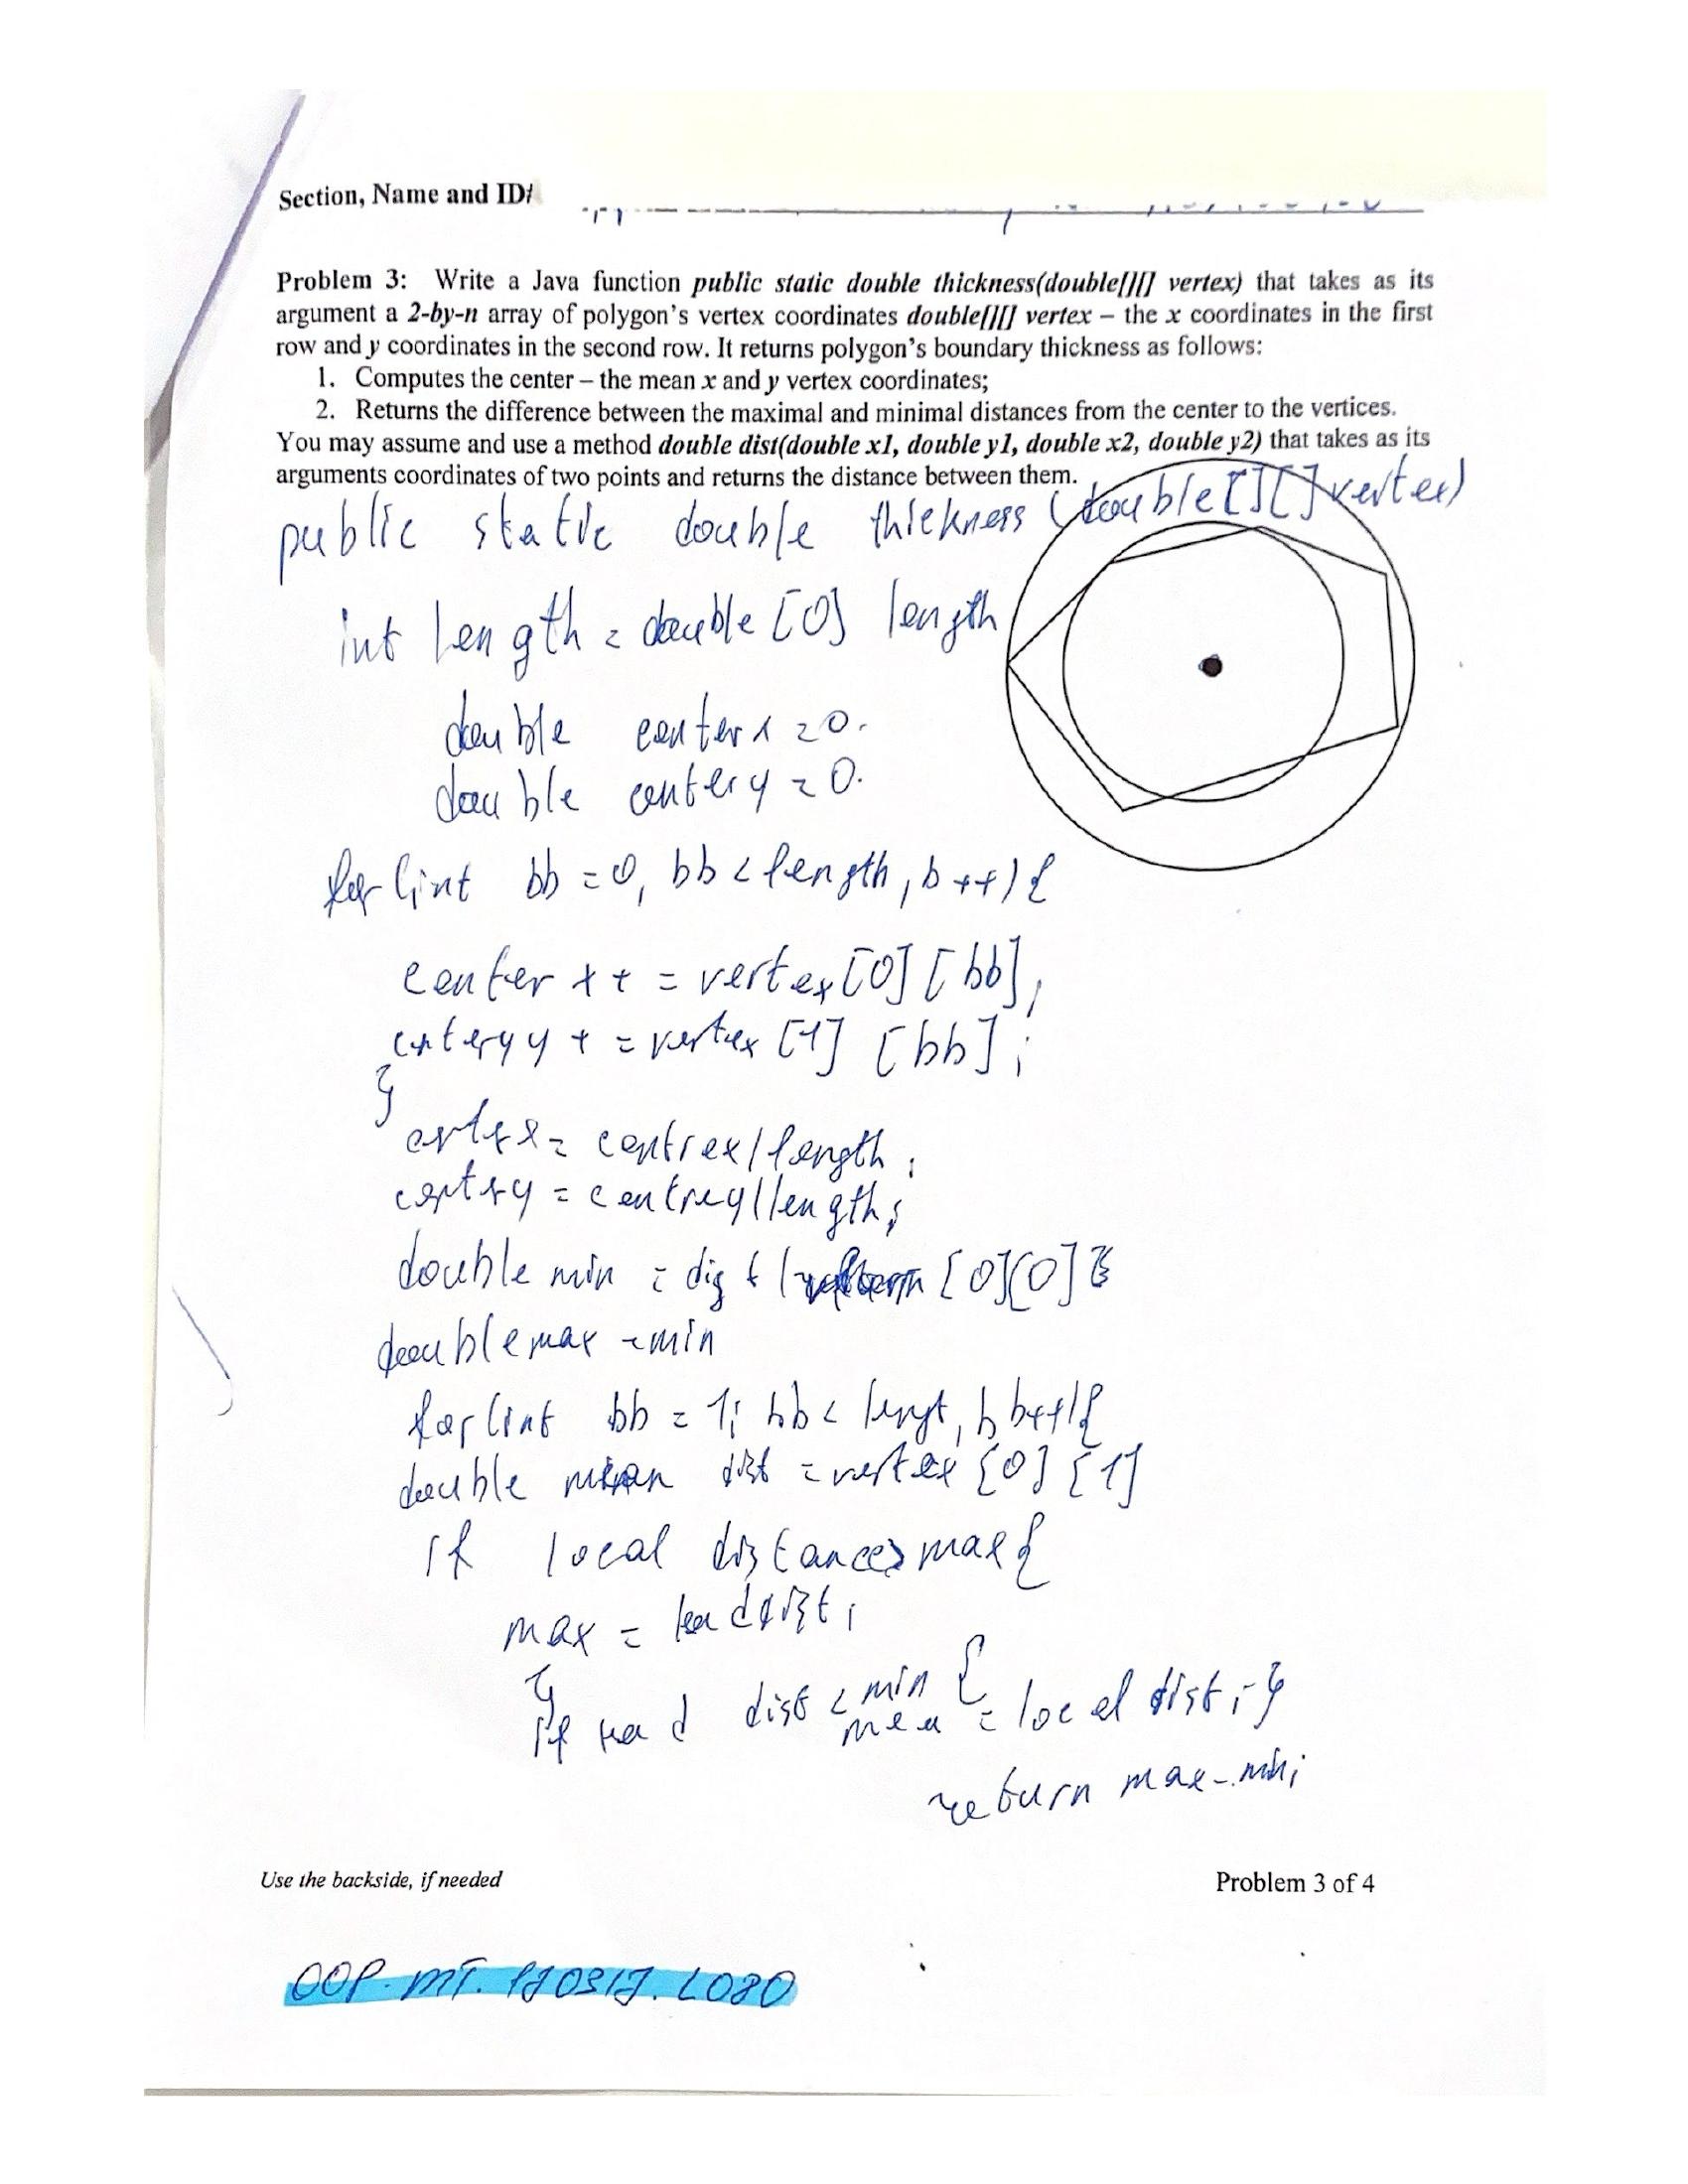 Section, Name and ID#
Problem 3: Write a Java function public static double thickness(double[][] vertex) that takes as its
argument a 2-by-n array of polygon's vertex coordinates double[][] vertex – the x coordinates in the first
row and y coordinates in the second row. It returns polygon's boundary thickness as follows:
1. Computes the center – the mean x and y vertex coordinates;
2. Returns the difference between the maximal and minimal distances from the center to the vertices.
You may assume and use a method double dist(double x1, double y1, double x2, double y2) that takes as its
arguments coordinates of two points and returns the distance between them.
public static double thickness (double[][] vertex)
int length = double [0] length
double center x = 0.
double center y = 0.
for (int bb = 0, bb < length, b++) {
center x + = vertex [0] [bb];
y + = vertex [1] [bb];
}
= centrex / length;
= centrey / length;
double min = dist ( [0][0]
double max = min
for (int bb = 1; bb < lengt, bb++) {
double dist = vertex [0] [1]
if local distance > max {
max =
}
if dist < min {
= local dist; }
return max - min;
Use the backside, if needed
Problem 3 of 4
OOP. MT. 170317. L080